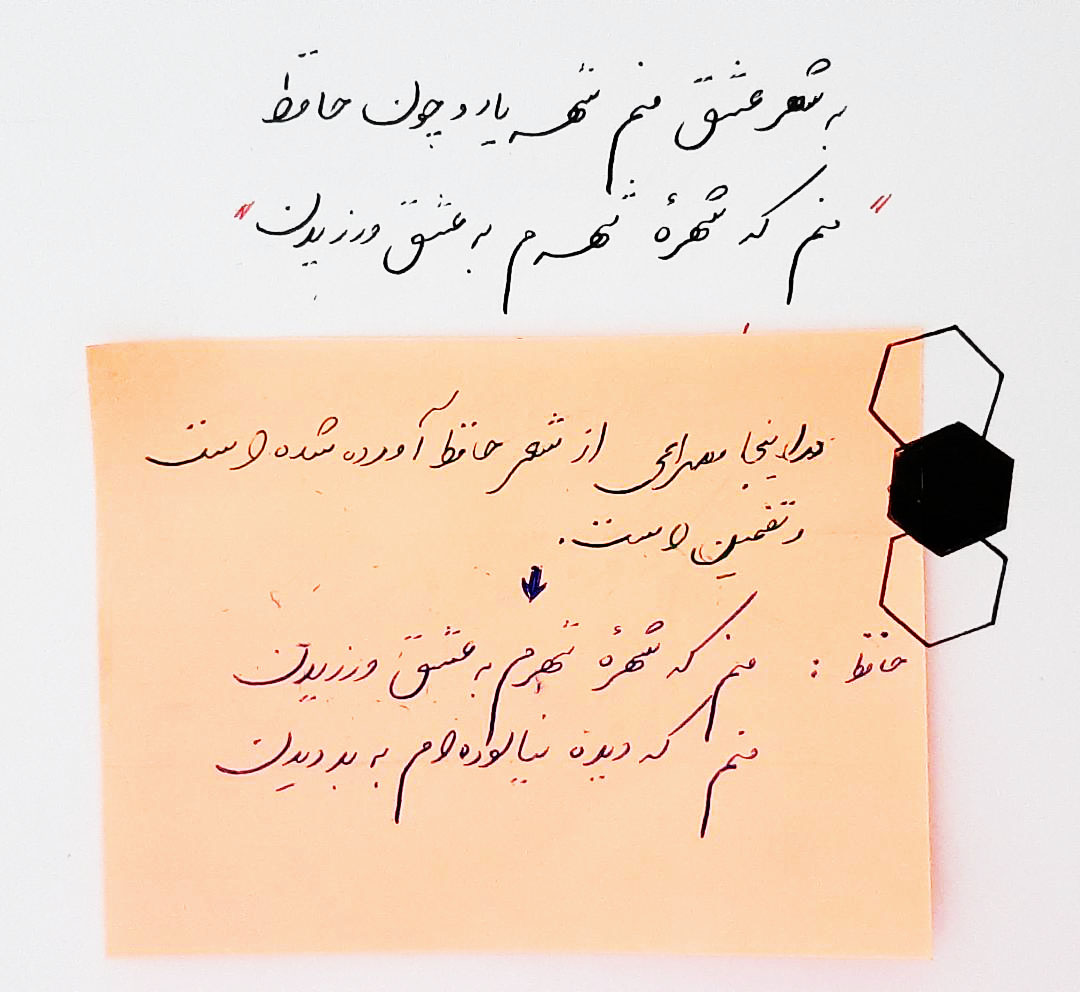 به شعر عشق منم شهریار و چون حافظ
"منم که شهرهٔ شهرم به عشق ورزیدن"
در اینجا مصراعی از شعر حافظ آورده شده است
و تضمین است.
حافظ : منم که شهرهٔ شهرم به عشق ورزیدن
منم که دیده نیالوده‌ام به بد دیدن